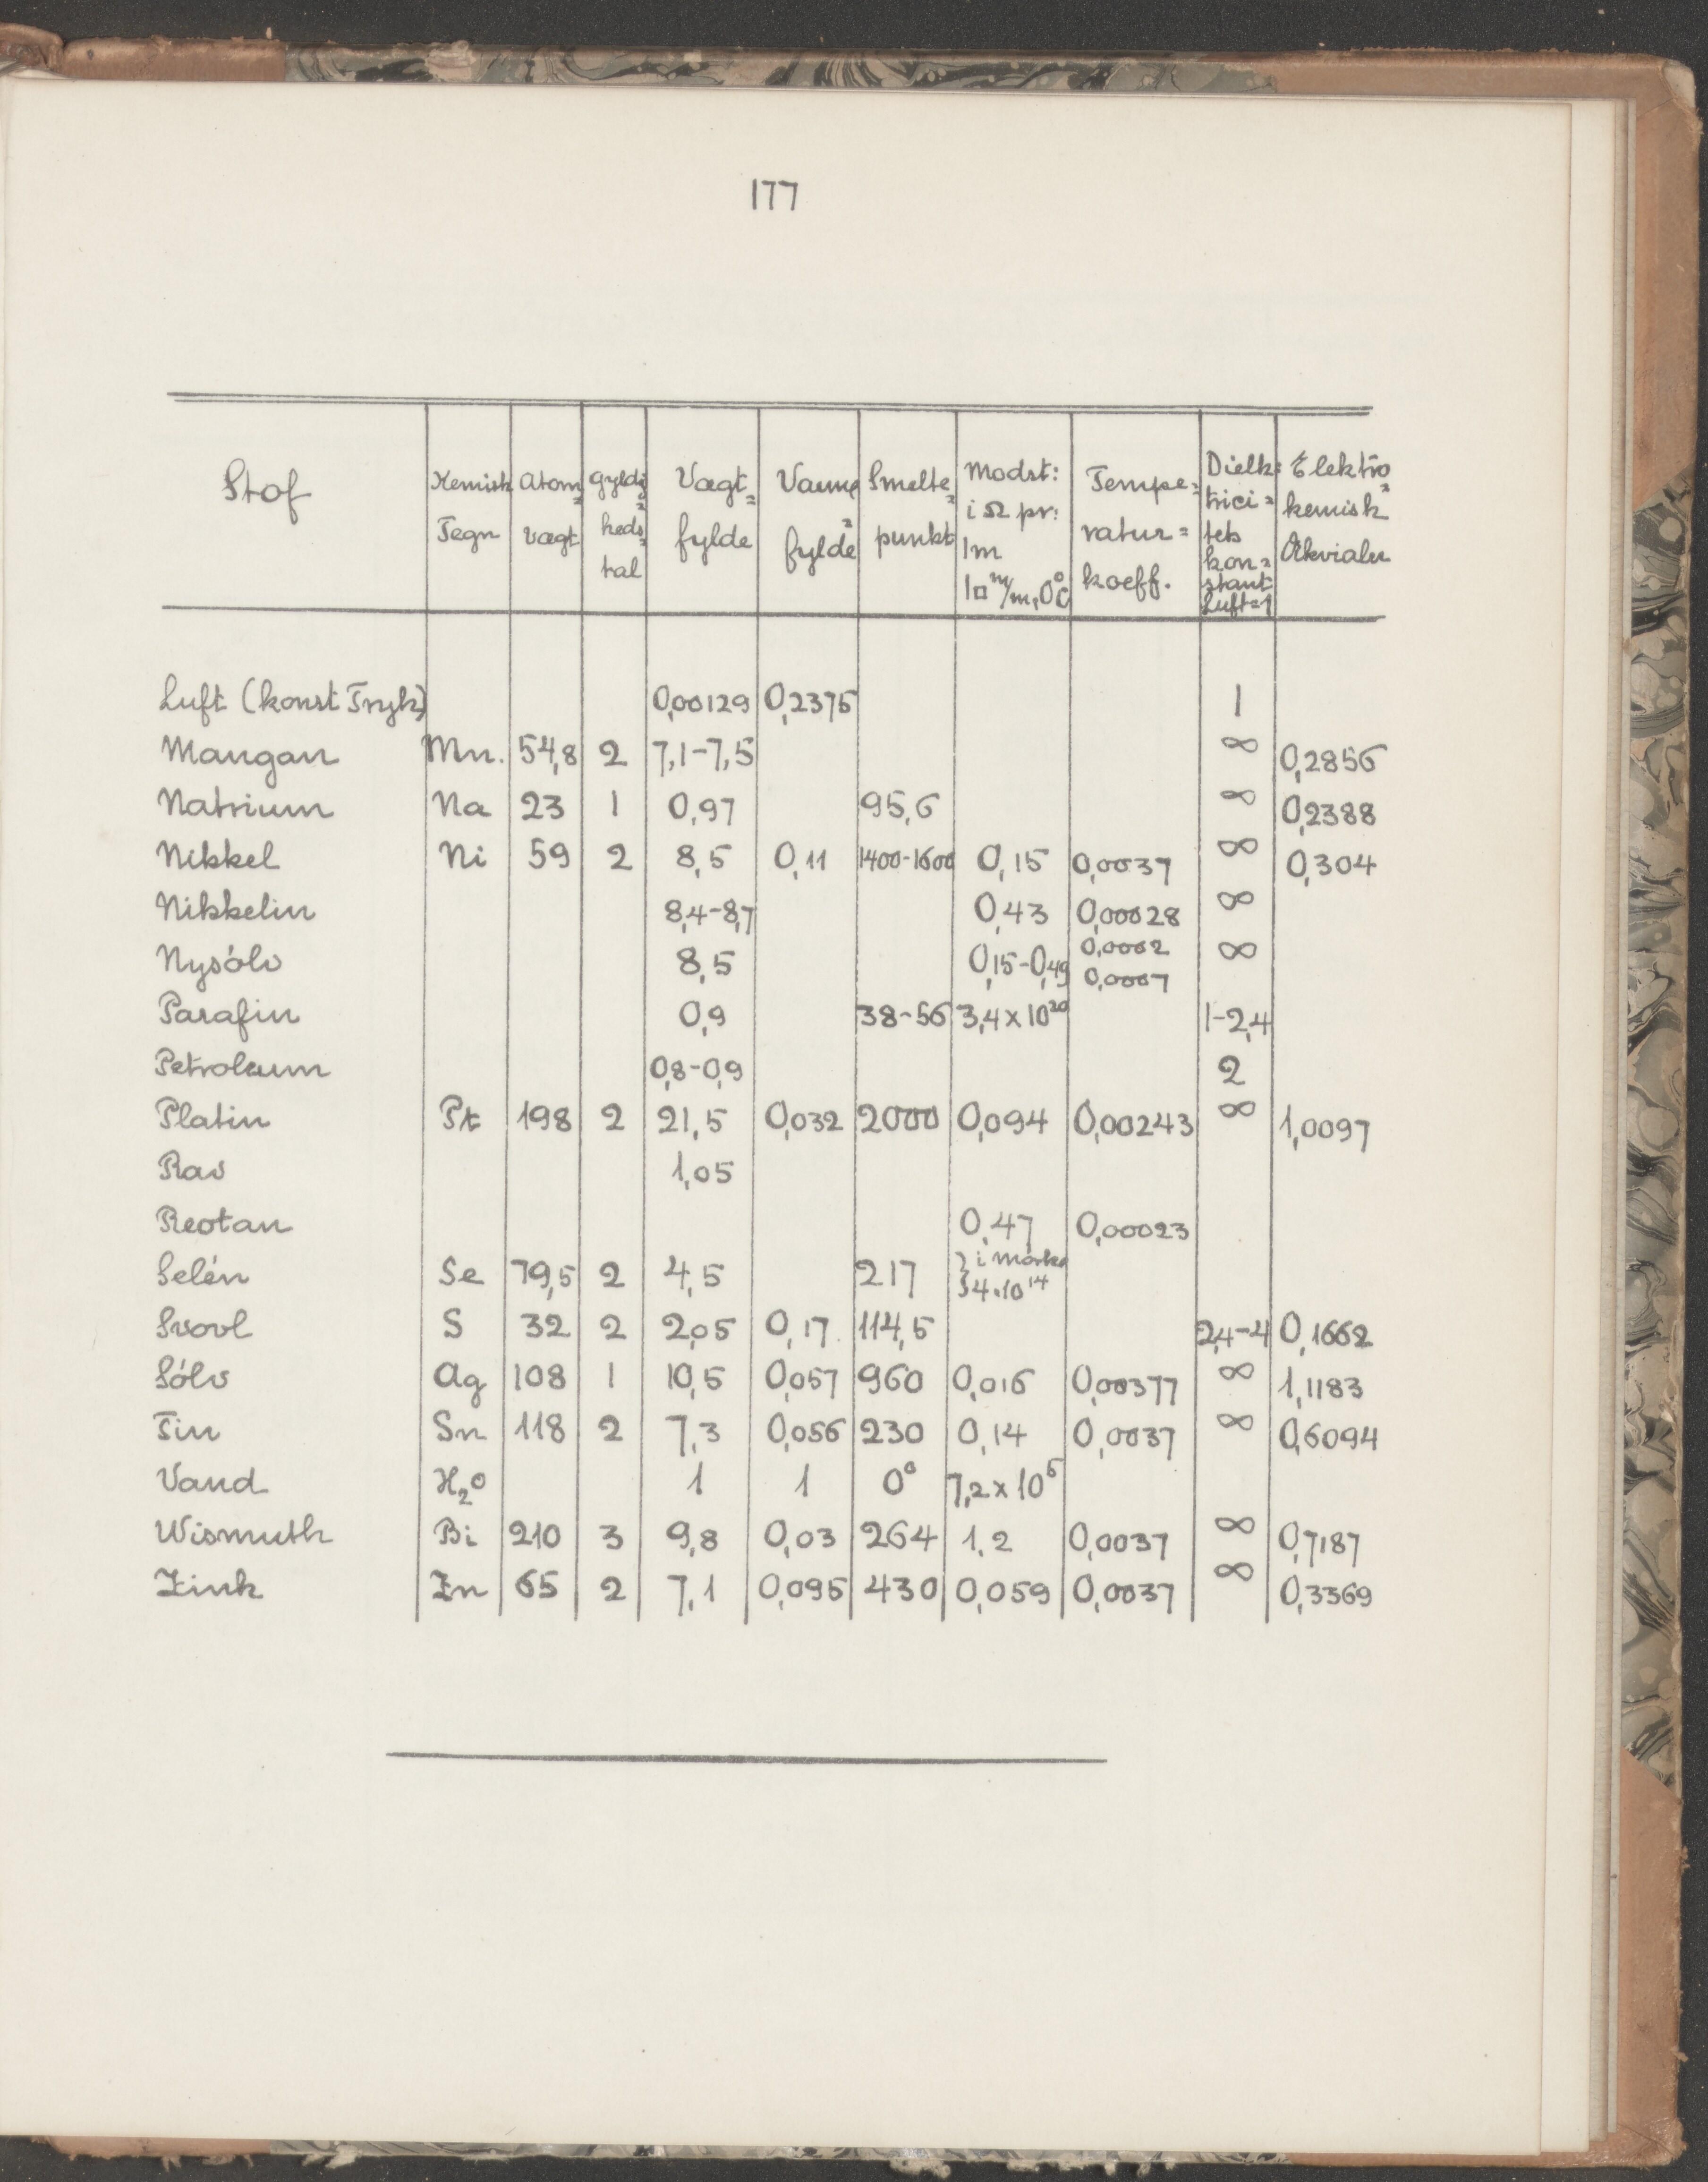 177
Stof Kemisk Tegn Atom= vægt Gyldig= heds= tal Vægt= fylde Varme= fylde Smelte= punkt Modst: i Ω pr: 1m 1□m/m, 0°C Tempe= ratur= koeff. Dielk= trici= tets kon= stant Luft=1 Elektro= kemisk Ækvialen
Luft (konst Tryk) 0,00129 0,2375 1
Mangan Mn. 54,8 2 7,1-7,5 ∞ 0,2856
Natrium Na 23 1 0,97 95,6 ∞ 0,2388
Nikkel Ni 59 2 8,5 0,11 1400-1600 0,15 0,0037 ∞ 0,304
Nikkelin 8,4-8,7 0,43 0,00028 ∞
Nysólv 8,5 0,15-0,49 0,0002 0,0007 ∞
Parafin 0,9 38-56 3,4x10²⁰ 1-2,4
Petroleum 0,8-0,9 2
Platin Pt 198 2 21,5 0,032 2000 0,094 0,00243 ∞ 1,0097
Rav 1,05
Reotan 0,47 0,00023
Selén Se 79,5 2 4,5 217 } i mórke 4·10¹⁴
Svovl S 32 2 2,05 0,17. 114,5 2,4-4 0,1662
Sólv Ag 108 1 10,5 0,057 960 0,016 0,00377 ∞ 1,1183
Tin Sn 118 2 7,3 0,056 230 0,14 0,0037 ∞ 0,6094
Vand H₂O 1 1 0° 7,2x10⁶
Wismuth Bi 210 3 9,8 0,03 264 1,2 0,0037 ∞ 0,7187
Zink Zn 65 2 7,1 0,095 430 0,059 0,0037 ∞ 0,3369